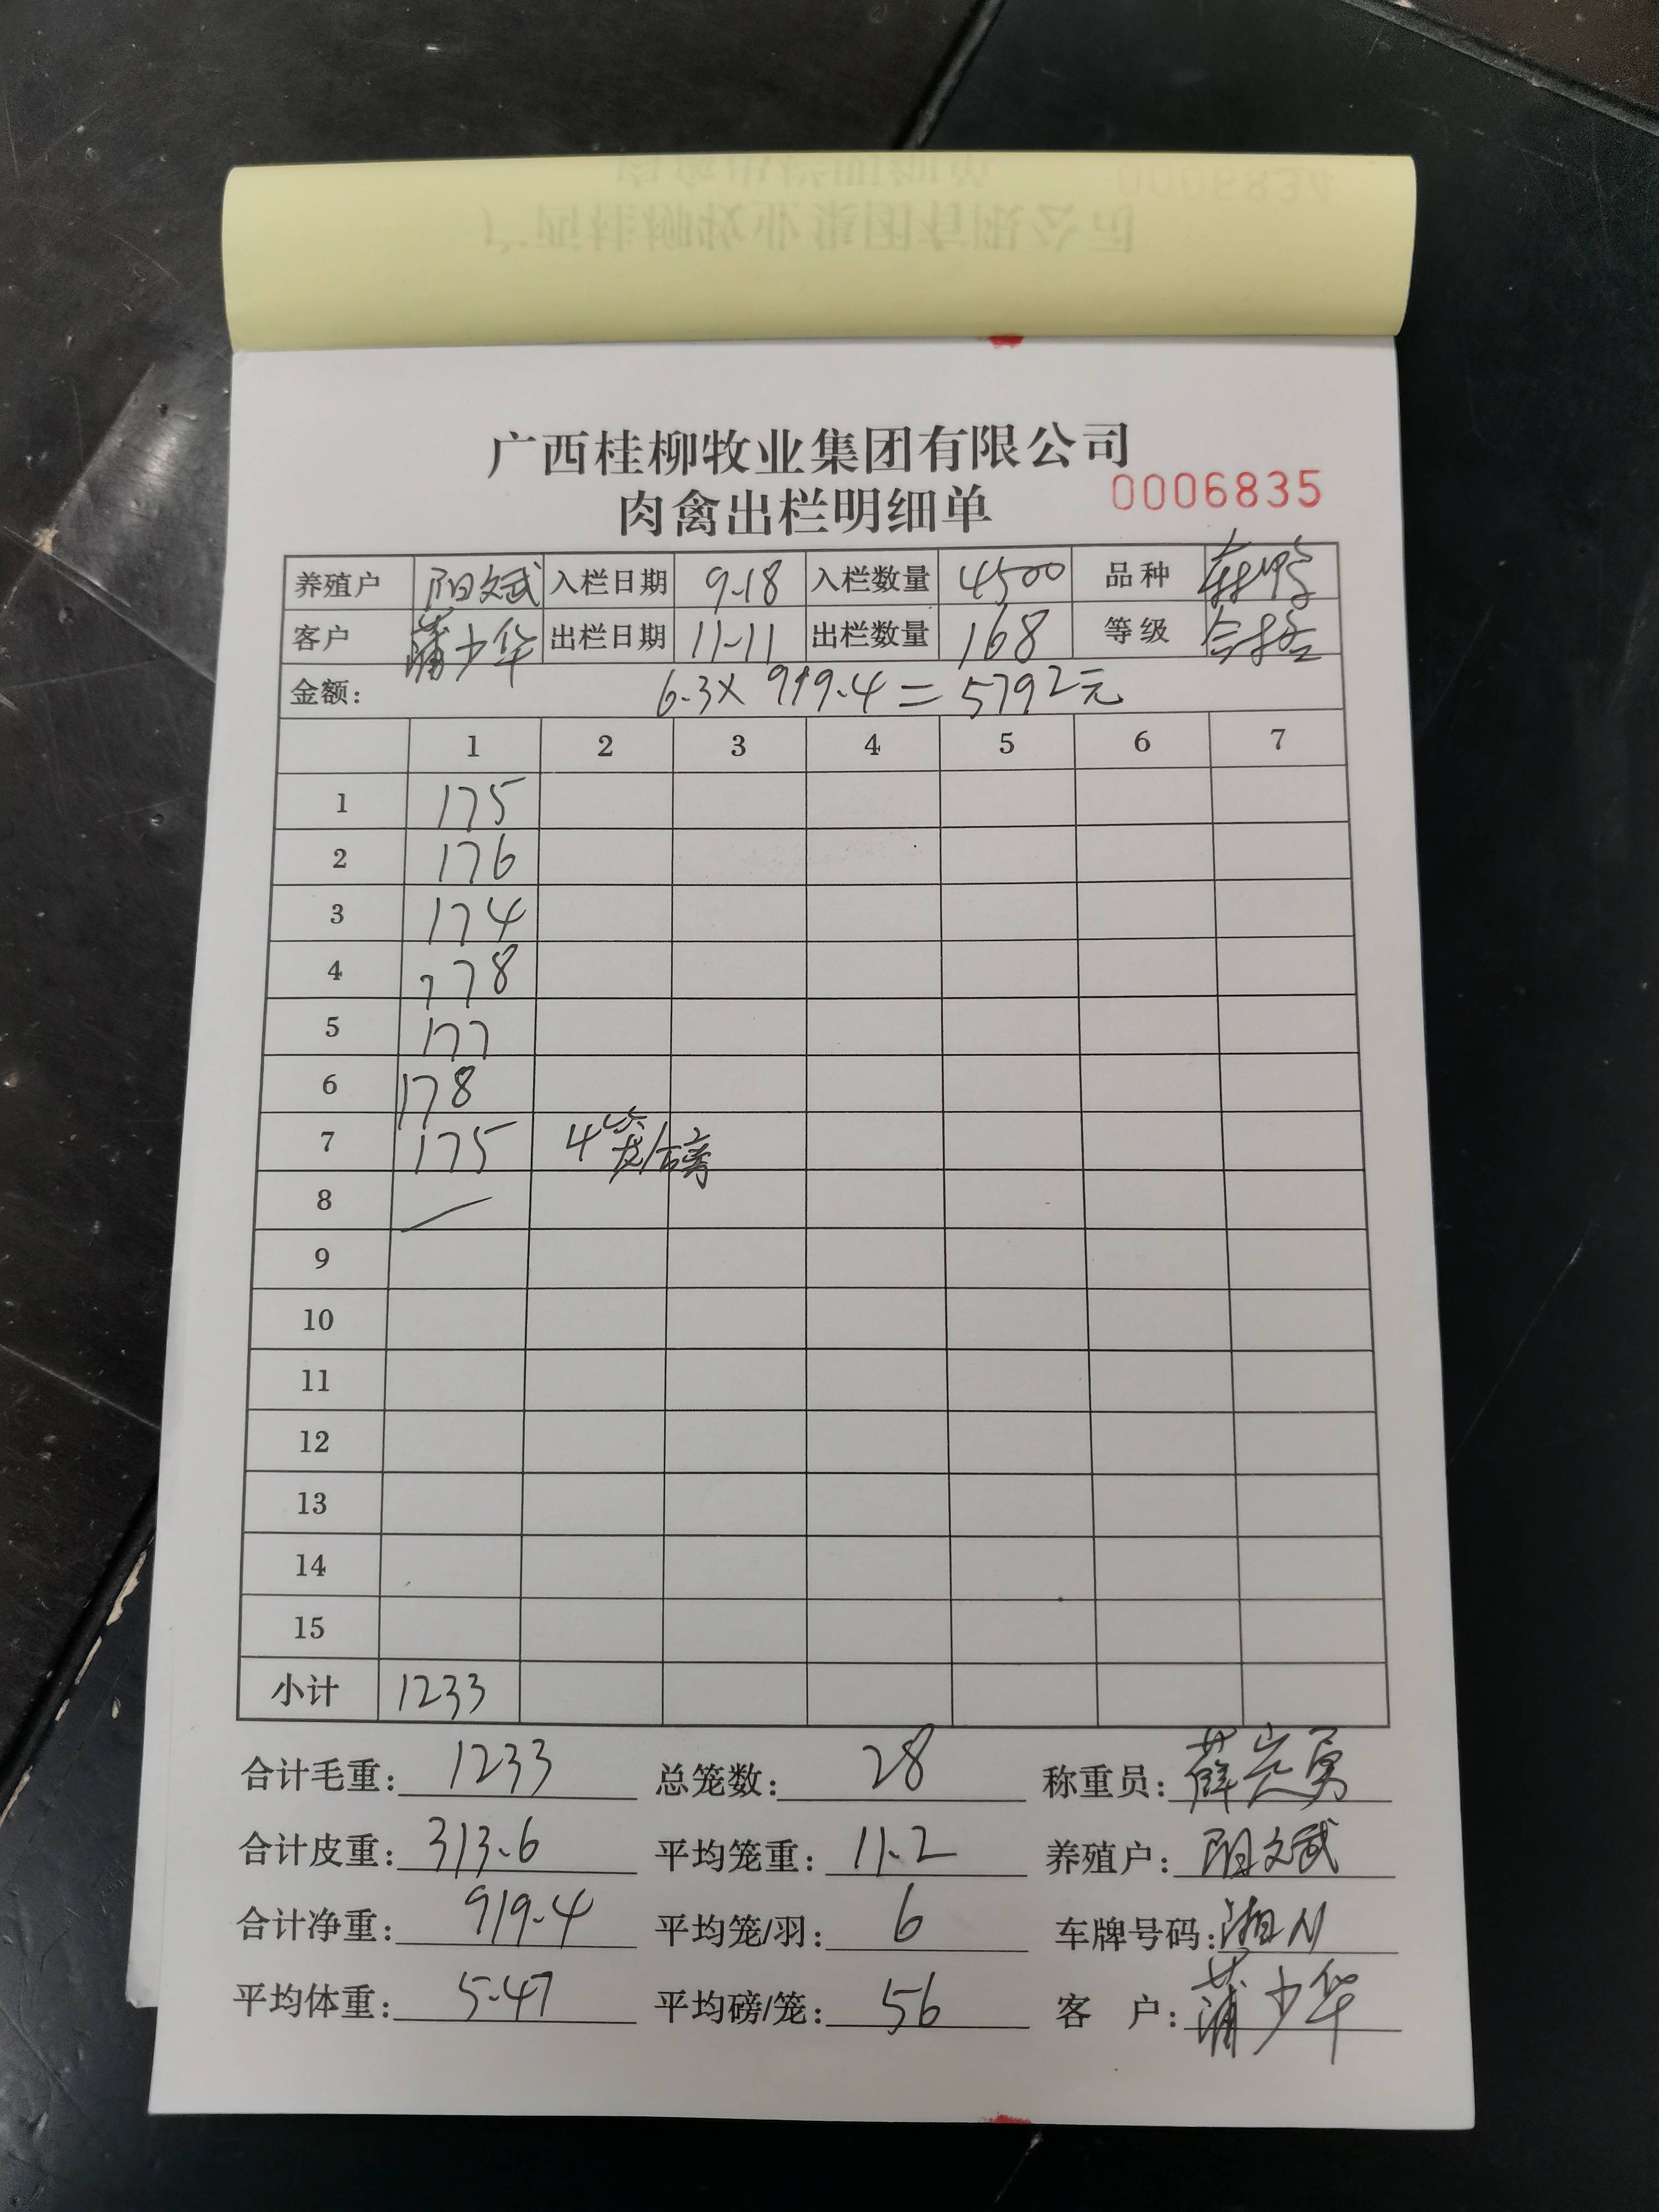 广西桂柳牧业集团有限公司
肉禽出栏明细单 0006835
养殖户 阳文武 入栏日期 9.18 入栏数量 4500 品种
客户 蒲少华 出栏日期 11-11 出栏数量 168 等级 合格
金额: 6.3x 919.4 = 5792元
1 2 3 4 5 6 7
1 175
2 176
3 174
4 178
5 177
6 178
7 175 4笼/磅
8
9
10
11
12
13
14
15
小计 1233
合计毛重: 1233 总笼数: 28 称重员: 薛
合计皮重: 313.6 平均笼重: 11.2 养殖户: 阳文武
合计净重: 919.4 平均笼/羽: 6 车牌号码: 湘N
平均体重: 5.47 平均磅/笼: 56 客 户: 蒲少华
0006834
肉禽出栏明细单
广西桂柳牧业集团有限公司